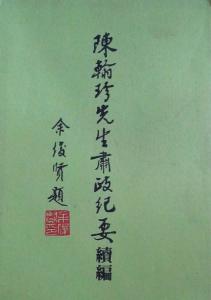 陳翰珍先生肅政紀要續編
余俊賢題